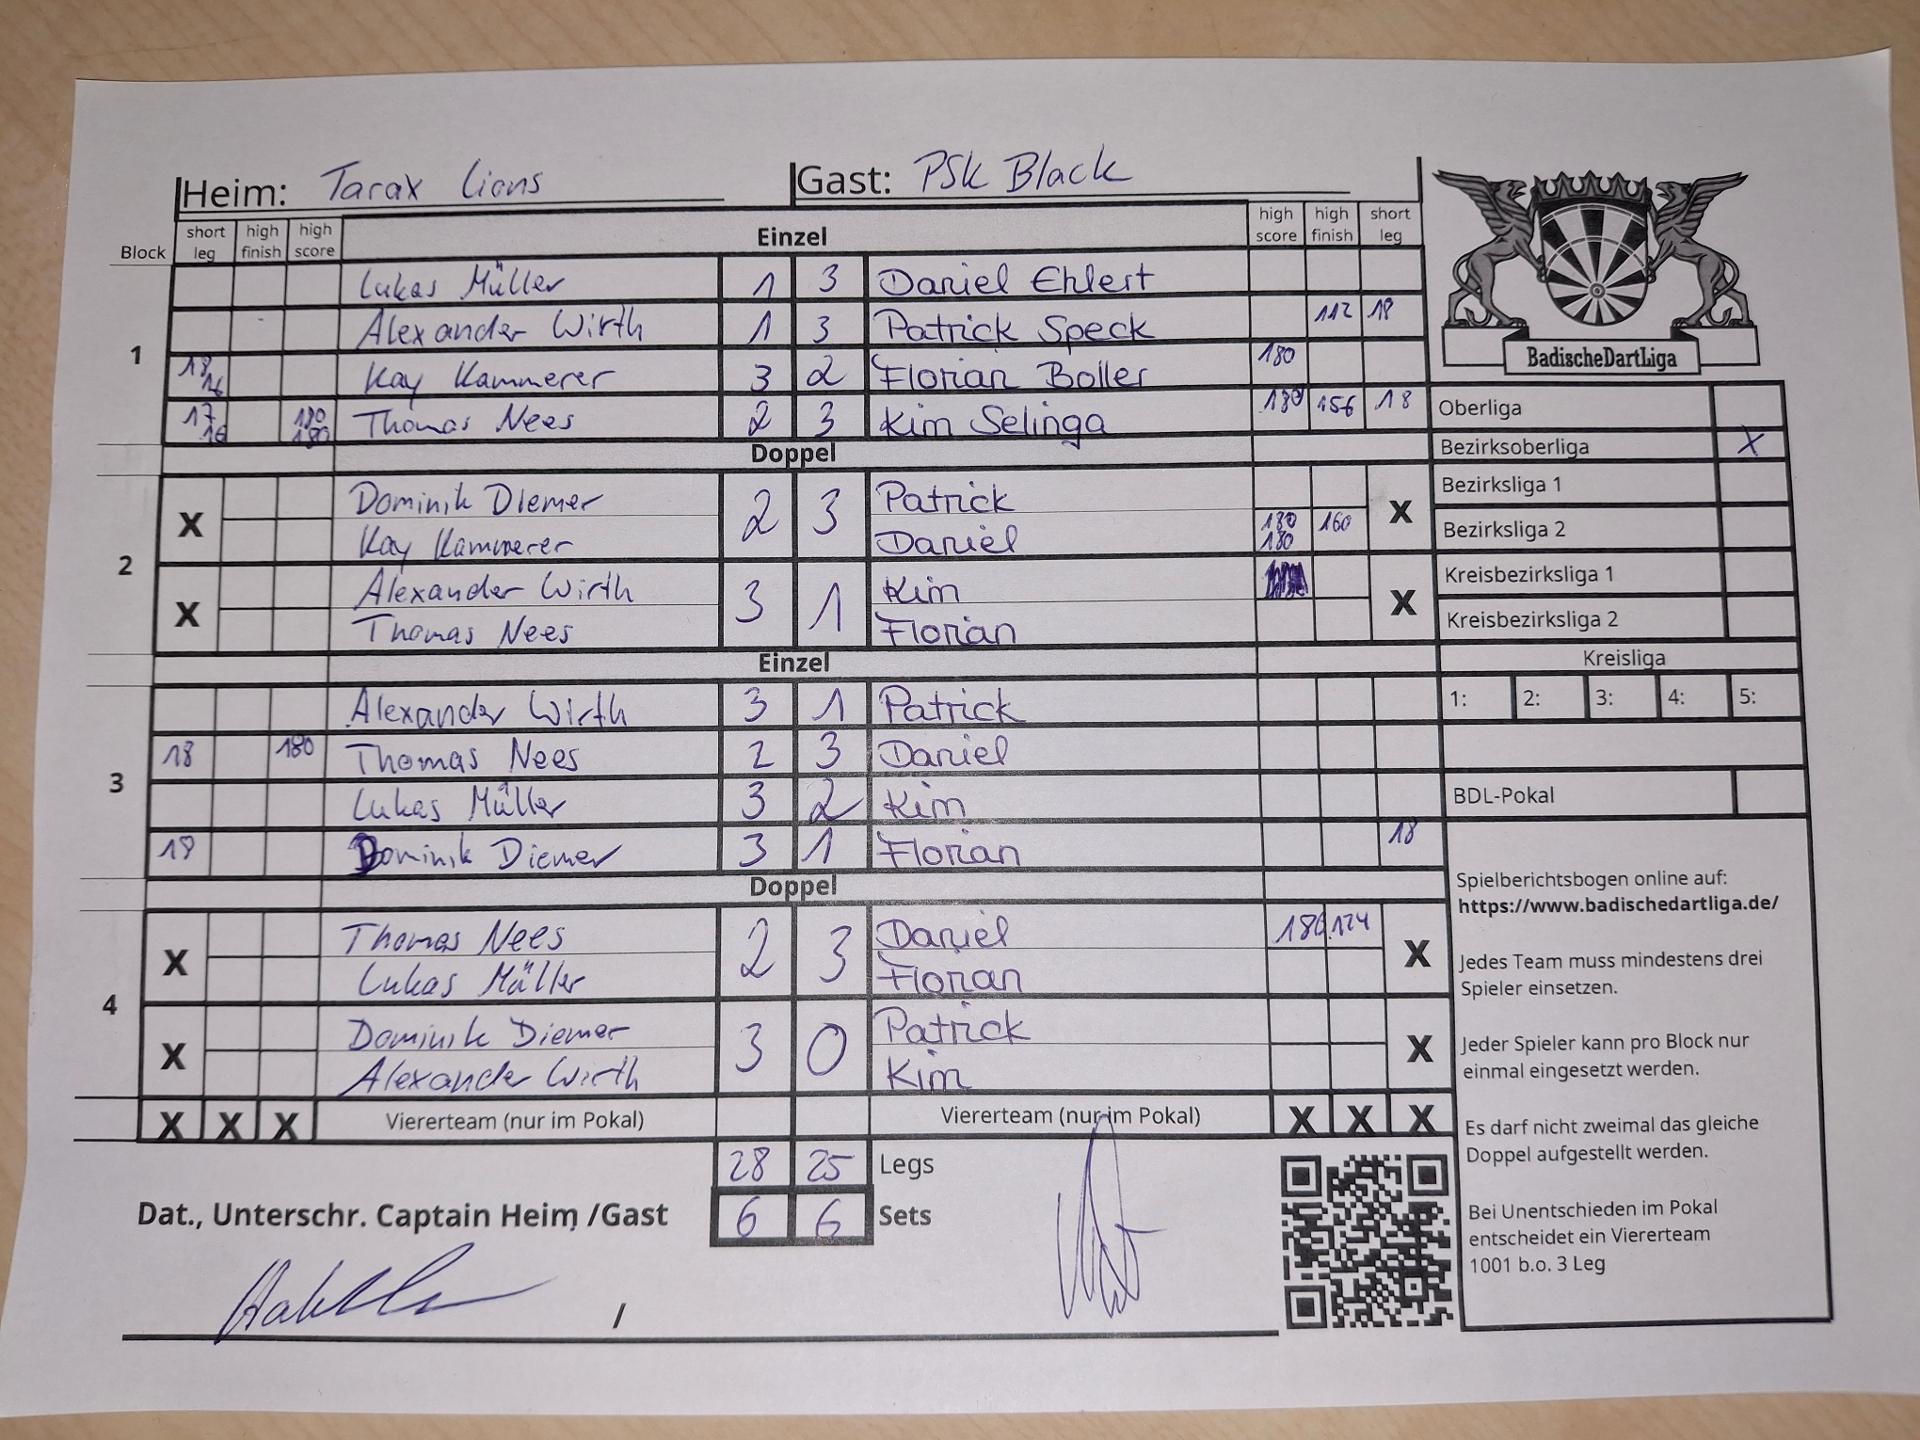 Heim: Tarax Lions Gast: PSK Black
Block short leg high finish high score Einzel high score high finish short leg
1
Lukas Müller 1 3 Daniel Ehlert
Alexander Wirth 1 3 Patrick Speck 112 18
18 16 Kay Kammerer 3 2 Florian Boller 180
17 16 180 180 Thomas Nees 2 3 Kim Selinga 180 156 18
Doppel
2
X Dominik Diemer 2 3 Patrick X
Kay Kammerer Daniel 180 180 160
X Alexander Wirth 3 1 Kim X
Thomas Nees Florian
Einzel
3
Alexander Wirth 3 1 Patrick
18 180 Thomas Nees 2 3 Daniel
Lukas Müller 3 2 Kim
Dominik Diemer 3 1 Florian 18
Doppel
4
X Thomas Nees 2 3 Daniel 180 124 X
Lukas Müller Florian
X Dominik Diemer 3 0 Patrick X
Alexander Wirth Kim
X X X Viererteam (nur im Pokal) Viererteam (nur im Pokal) X X X
28 25 Legs
Dat., Unterschr. Captain Heim /Gast 6 6 Sets
/
BadischeDartLiga
Oberliga
Bezirksoberliga X
Bezirksliga 1
Bezirksliga 2
Kreisbezirksliga 1
Kreisbezirksliga 2
Kreisliga
1: 2: 3: 4: 5:
BDL-Pokal
Spielberichtsbogen online auf:
https://www.badischedartliga.de/
Jedes Team muss mindestens drei
Spieler einsetzen.
Jeder Spieler kann pro Block nur
einmal eingesetzt werden.
Es darf nicht zweimal das gleiche
Doppel aufgestellt werden.
Bei Unentschieden im Pokal
entscheidet ein Viererteam
1001 b.o. 3 Leg